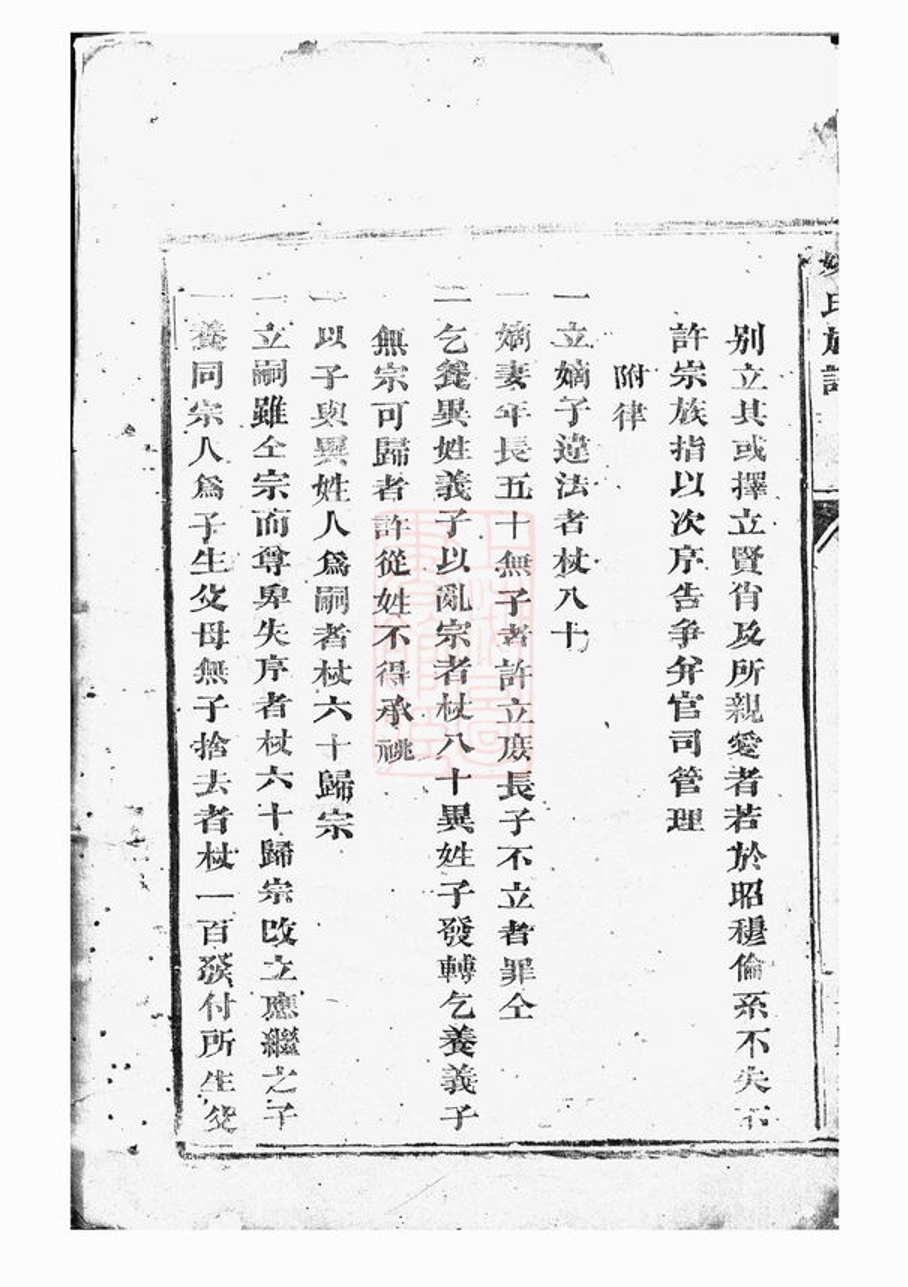 氏族譜
別立其或擇立賢肖及所親愛者若於昭穆倫系不失不
許宗族指以次序告爭弁官司管理
附律
一立嫡子違法者杖八十
一嫡妻年長五十無子者許立庶長子不立者罪仝
一乞養異姓義子以亂宗者杖八十異姓子發轉乞養義子
無宗可歸者許從姓不得承祧
一以子與異姓人爲嗣者杖六十歸宗
一立嗣雖仝宗而尊卑失序者杖六十歸宗改立應繼之子
一養同宗人爲子生父母無子捨去者杖一百發付所生父